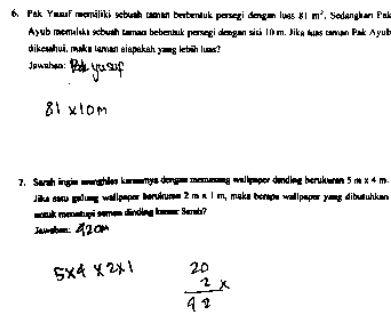 6. Pak Yusuf memiliki sebuah taman berbentuk persegi dengan luas 81 m². Sedangkan Pak
Ayub memiliki sebuah taman bebentuk persegi dengan sisi 10 m. Jika luas taman Pak Ayub
dikesahui, maka taman siapakah yang lebih luas?
Jawaban: Pak yusuf
81 x10m
7. Sarah ingin menghias kamarnya dengan memasang wallpaper dinding berukuran 5 m x 4 m.
Jika satu gulung wallpaper berukuran 2 m x 1 m, maka berapa wallpaper yang dibutuhkan
untuk menutupi semua dinding kamar Sarah?
Jawaban: 420m
5x4 x 2x1
20
2 x
42